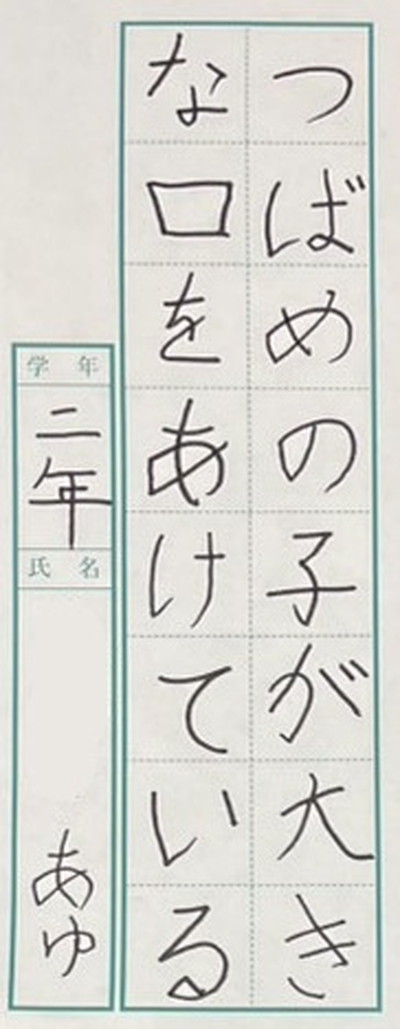 つばめの子が大き
な口をあけている
学年
二年
氏名
あゆ